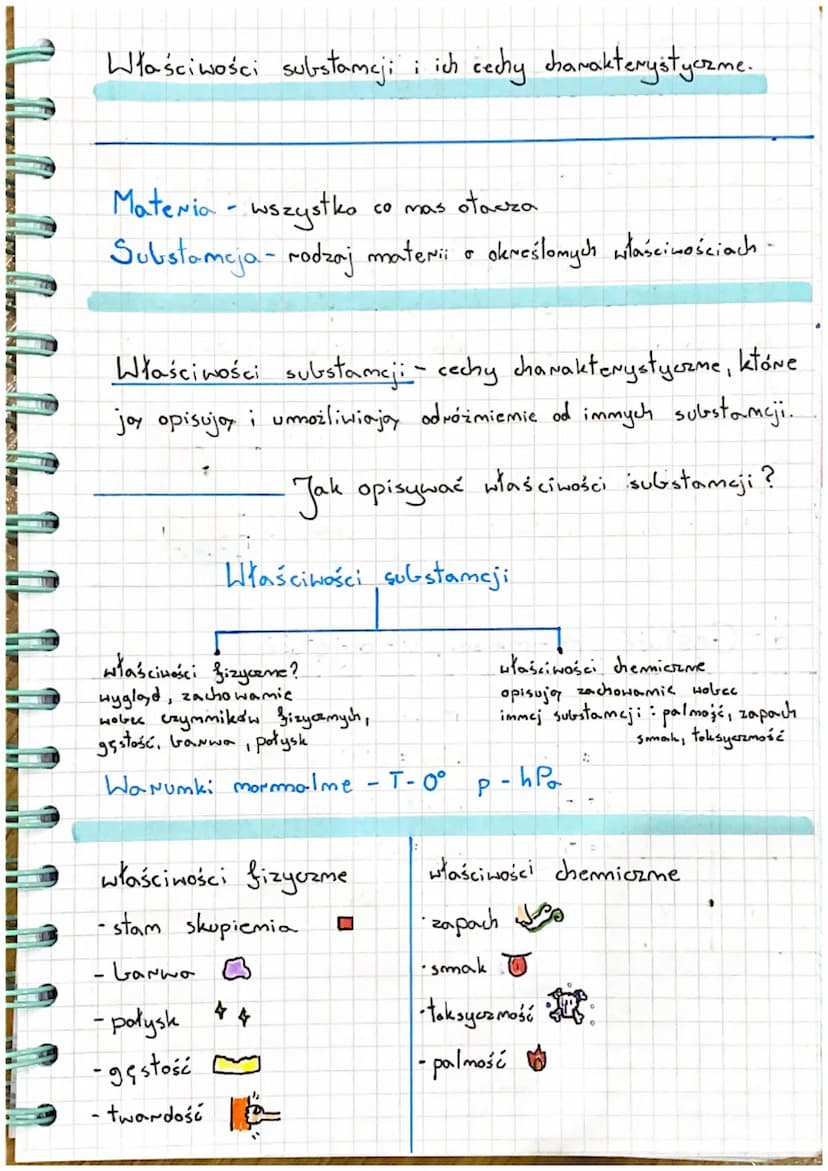 Właściwości substancji i ich cechy charakterystyczne.
Materia - wszystko co nas otacza
Substancja - rodzaj materii o określonych właściwościach -
Właściwości substancji - cechy charakterystyczne, które
ją opisują i umożliwiają odróżnienie od innych substancji.
Jak opisywać właściwości substancji?
Właściwości substancji
właściwości fizyczne?
wygląd, zachowanie
wobec czynników fizycznych,
gęstość, barwa, połysk
właściwości chemiczne
opisują zachowanie wobec
innej substancji: palność, zapach
smak, toksyczność
Warunki normalne - T - 0° p - hPa
właściwości fizyczne
- stan skupienia
- barwa
- połysk
- gęstość
- twardość
właściwości chemiczne
· zapach
· smak
- toksyczność
- palność